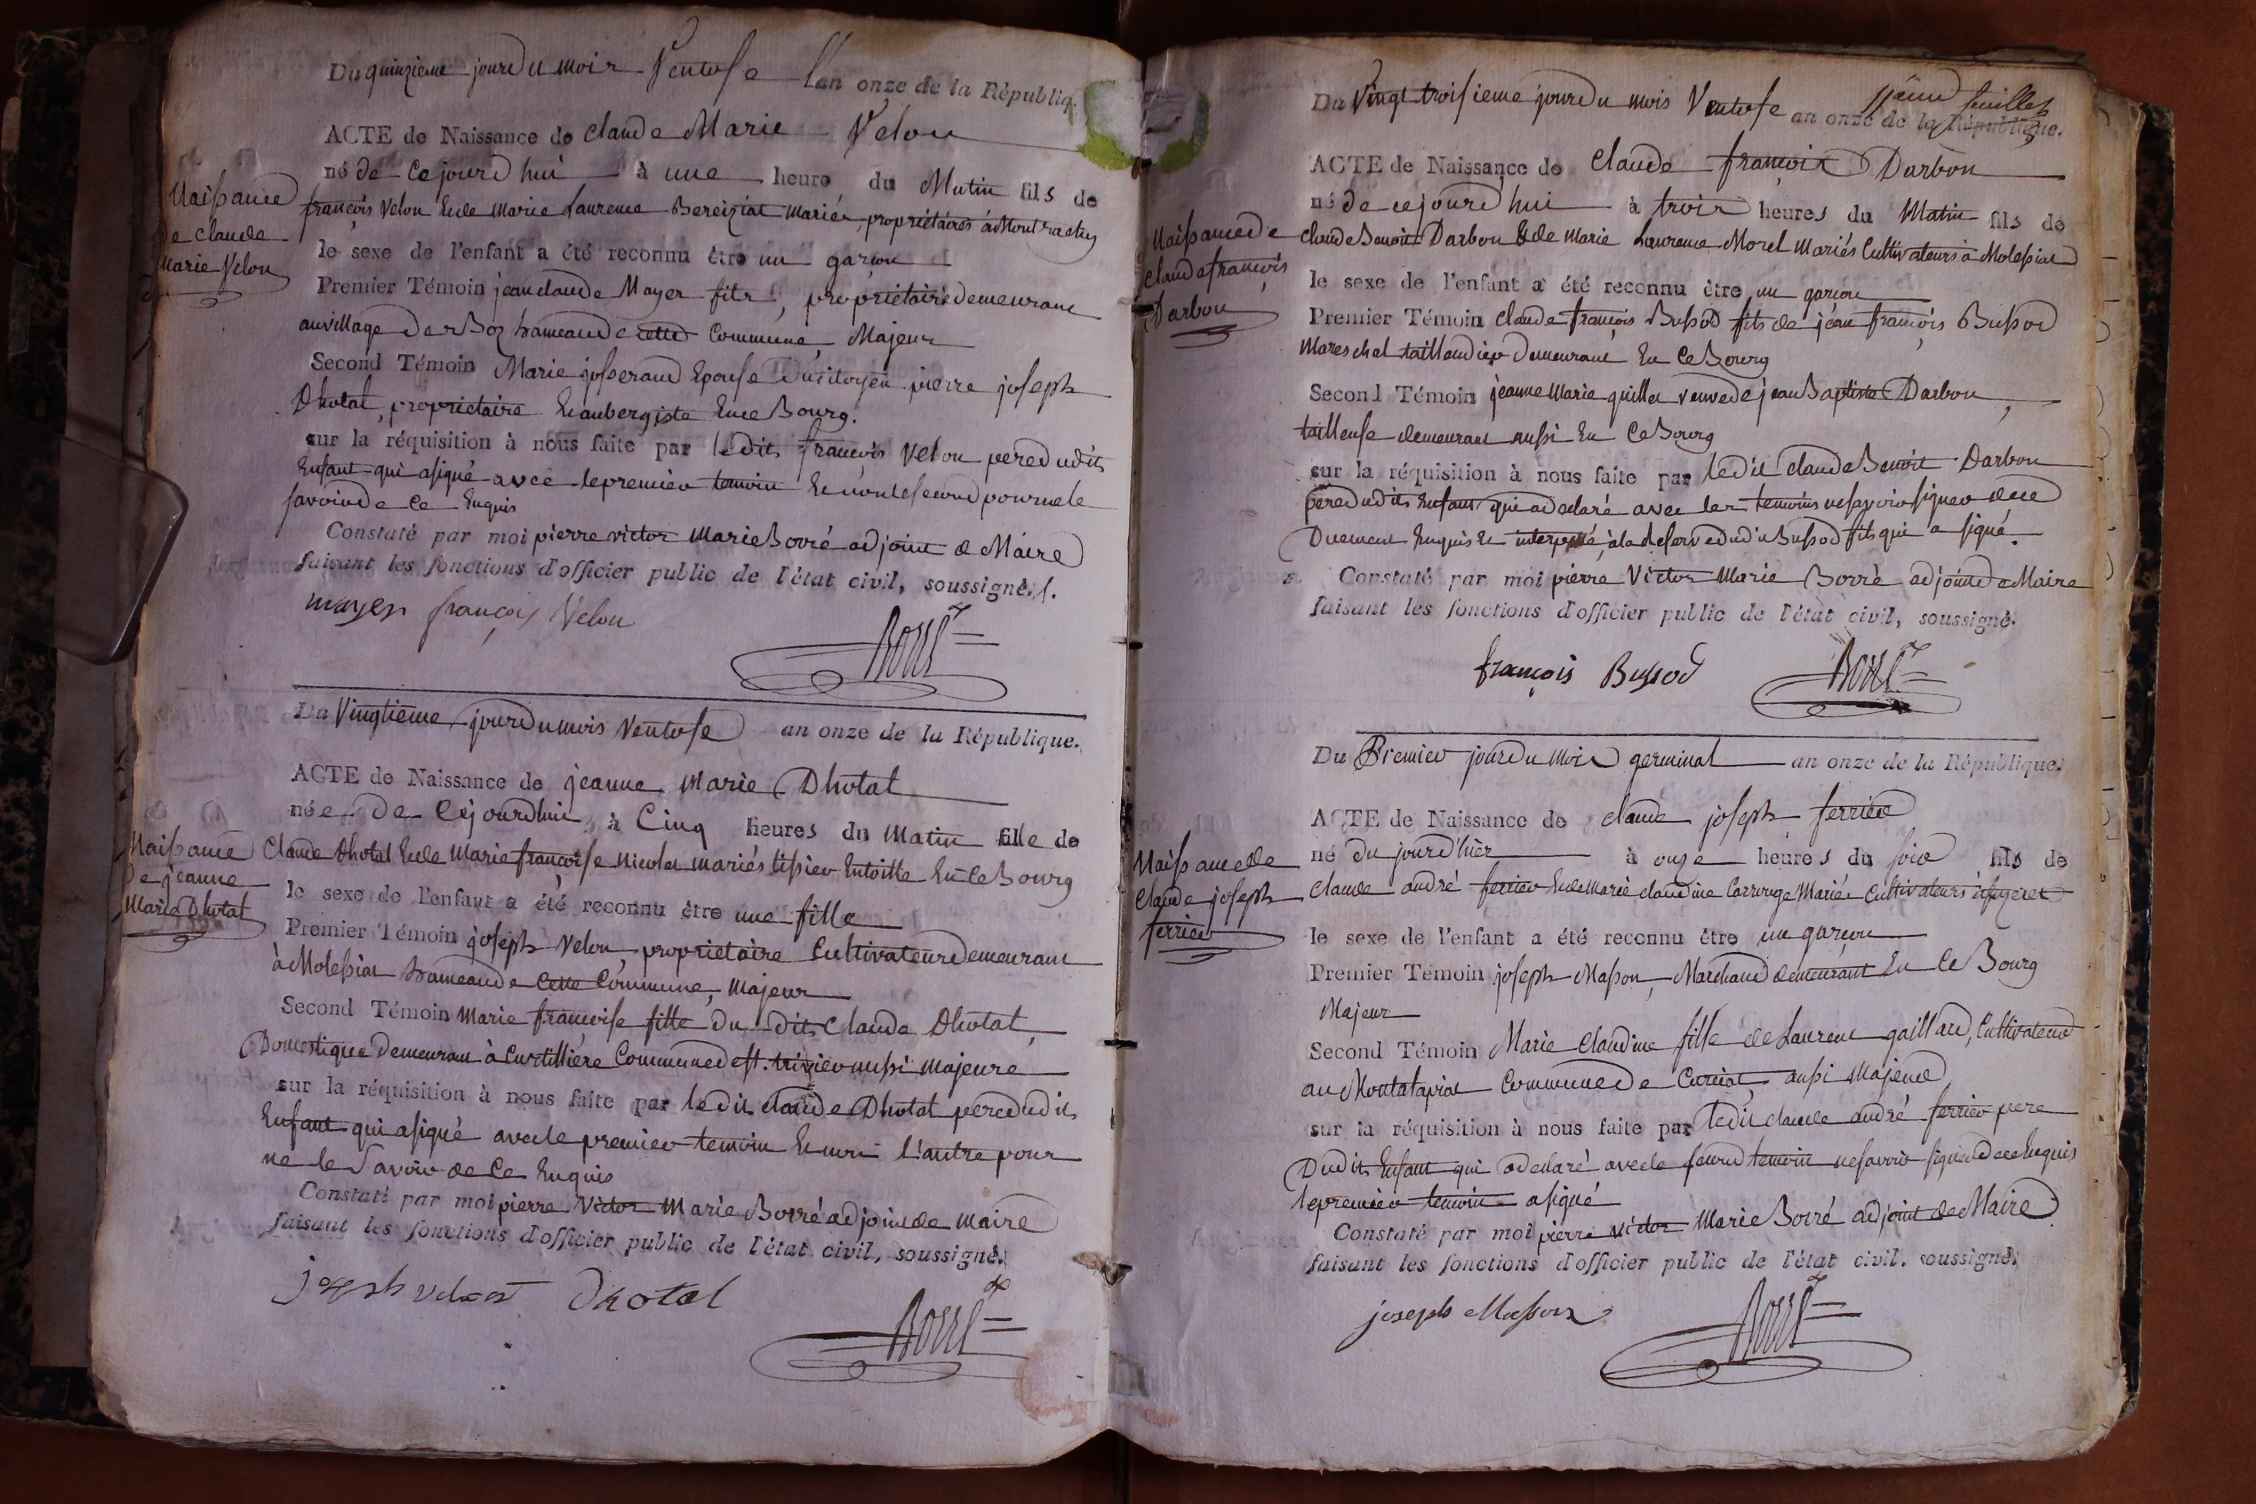 Du quinzieme jour du mois Ventose l'an onze de la Républiq.
ACTE de Naissance de Claude Marie Velon
né de ce jourd'hui à une heure du Matin fils de
françois Velon et de Marie Laurence Bereiziat mariés, propriétaires à Montrachy
Naissance
de Claude
Marie Velon
le sexe de l'enfant a été reconnu être un garçon
Premier Témoin jean claude Mayer fils, propriétaire demeurant
au village hameau de cette Commune, Majeur
Second Témoin Marie josserand Epouse du citoyen pierre joseph
Dhotal, propriétaire et aubergiste en ce Bourg.
sur la réquisition à nous faite par ledit françois Velon pere dudit
Enfant qui a signé avec le premier temoin et non le second pour ne le
savoir de ce Enquis
Constaté par moi pierre victor Marie Borré adjoint de Maire
faisant les fonctions d'officier public de l'état civil, soussigné.
mayer françois Velon
Borré
Du Vingtieme jour du mois Ventose an onze de la République.
ACTE de Naissance de jeanne Marie Dhotal
née de Cejourdhui à Cinq heures du Matin fille de
Claude Dhotal et de Marie françoise Nicolas mariés tissier Entoille En ce Bourg
Naissance
de jeanne
Marie Dhotal
le sexe de l'enfant a été reconnu être une fille
Premier Témoin joseph Velon, propriétaire Cultivateur demeurant
à Molessiat hameau de Cette Commune, Majeur
Second Témoin Marie françoise fille du dit Claude Dhotal,
Domestique demeurant à Curtillière Commune de st. trivier aussi majeure
sur la réquisition à nous faite par le dit claude Dhotal pere dudit
Enfant qui a signé avec le premier temoin et non l'autre pour
ne le Savoir de Ce Enquis
Constaté par moi pierre Victor Marie Borré adjoint de Maire
faisant les fonctions d'officier public de l'état civil, soussigné.
joseph velon Dhotal
Borré
11eme feuillet
Du Vingt troisieme jour du mois Ventose an onze de la République.
ACTE de Naissance de Claude françois Darbon
né de ce jourd'hui à trois heures du Matin fils de
claude Benoit Darbon et de Marie Laurence Morel Mariés Cultivateurs à Molessiat
Naissance de
Claude françois
Darbon
le sexe de l'enfant a été reconnu être un garçon
Premier Témoin claude françois Bussod fils de jean françois Bussod
Mareschal taillandier demeurant En Ce Bourg
Second Témoin jeanne Marie quillet veuve de jean Baptiste Darbon,
tailleuse demeurant aussi En Ce Bourg
sur la réquisition à nous faite par ledit claude Benoit Darbon
pere dudit Enfant qui a declaré avec les temoins ne savoir signer de ce
Duement Enquis et interpellé, à la reserve dudit Bussod fils qui a signé.
Constaté par moi pierre Victor Marie Borré adjoint de Maire
faisant les fonctions d'officier public de l'état civil, soussigné.
françois Bussod
Borré
Du Premier jour du mois germinal an onze de la République.
ACTE de Naissance de claude joseph ferrier
né du jourd'hier à onze heures du soir fils de
Claude andré ferrier et de Marie claudine Carrouge Mariés Cultivateurs
Naissance de
Claude joseph
ferrier
le sexe de l'enfant a été reconnu être un garçon
Premier Témoin joseph Masson, Marchand demeurant En Ce Bourg
Majeur
Second Témoin Marie claudine fille de Laurent gaillard, Cultivateur
au Montatapiat Commune de Curciat, aussi Majeure
sur la réquisition à nous faite par ledit claude andré ferrier pere
Dudit Enfant qui a declaré avec le second temoin ne savoir signer de ce Enquis
le premier temoin a signé
Constaté par moi pierre victor Marie Borré adjoint de Maire
faisant les fonctions d'officier public de l'état civil, soussigné.
joseph Masson
Borré